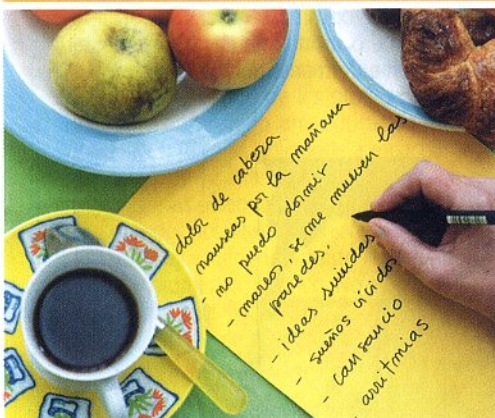 dolor de cabeza
nauseas por la mañana
- no puedo dormir
- mareos, se me mueven las
paredes.
- ideas suicidas
- sueños vívidos
- cansancio
- arritmias